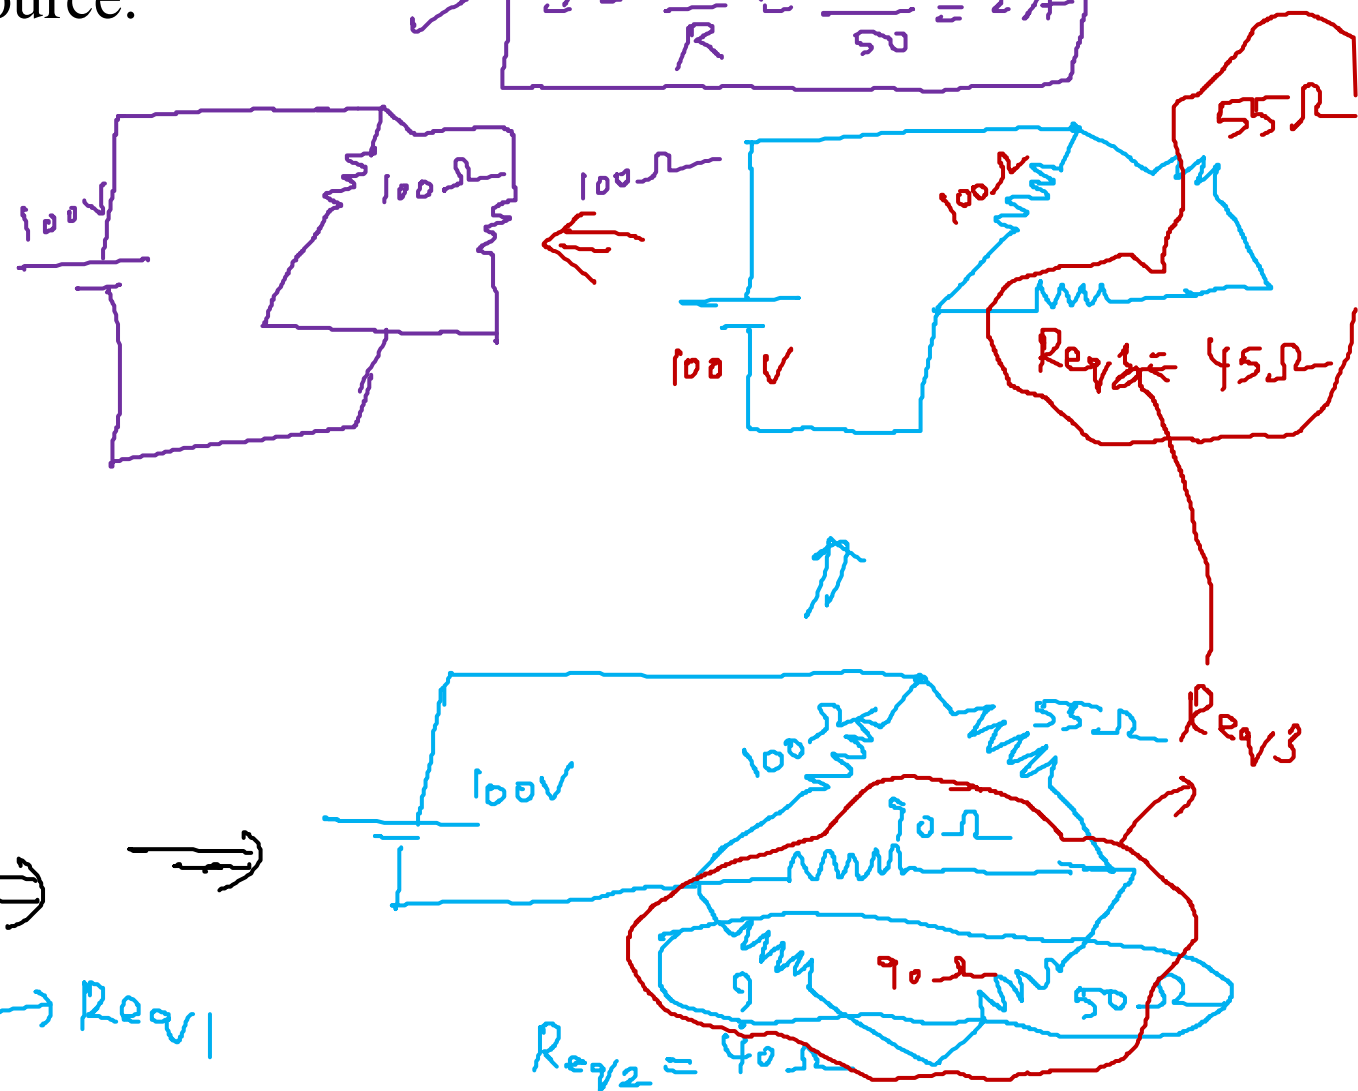 ource.
R 50 = 2A
55Ω
100V 100Ω 100Ω 100Ω
100 V
Req = 45Ω
100V 100Ω 55Ω Req3
90Ω
90Ω 50Ω
Req1
Req2 = 40Ω